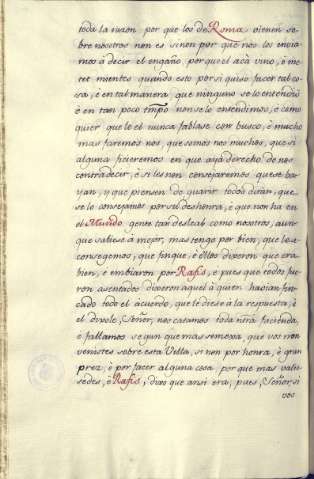 toda la razon por que los de Roma vienen so-
bre nosotros non es si non por que nos los envia-
mos a decir el engaño, por que el acá vino, é me-
tet mientes quando esto por si quiso facer tal co-
sa, é en tal manera, que ninguno se lo entendió
é en tan poco tmpo non se lo entendimos, é como
quier que lo el nunca fablase con busco, é mucho
mas faremos nos, que somos nos muchos, que si
alguna ficieremos en que aya derecho de nos
contradecir, é si les non consejaremos que se ba-
yan, y que piensen de guarir todos diran, que
se lo consejamos por su deshonra, é que non ha en
el Mundo gente tan desleal como nosotros, aun-
que sabiese a mejor, mas tengo por bien, que los a-
consegemos, que finque, é ellos dixeron que era
bien, é embiaron por Rasis, e pues que todos fue-
ron asentados dixeron a aquel a quien havian fin-
cado todo el acuerdo, que le diese a la respuesta, é
el dixole, Señor, nos catamos toda ntra facienda,
é fallamos segun que mas semexa, que vos non
venistes sobre esta Villa, si non por honra, é gran
prez, é por facer alguna cosa por que mas valie-
sedes, é Rasis, dixo que ansi era, pues, Señor, si
vos